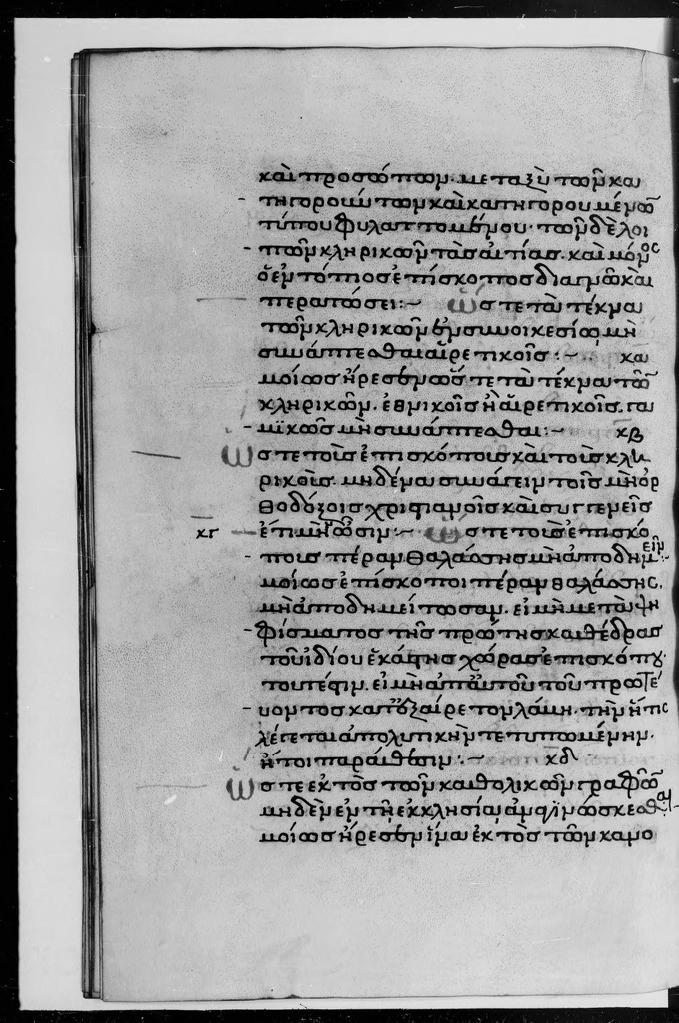 καὶ προσώπων. μεταξὺ τῶν κα
τηγορούντων καὶ κατηγορουμένω
τύπου φυλαττομένου. τῶν δὲ λοι
πῶν κληρικῶν τὰσ αἰτίασ. καὶ μόνος
ὁ ἐν τόπιοσ ἐπίσκοποσ διαγνῶ καὶ
περατώσει :~ Ὥστε τὰ τέκνα
τῶν κληρικῶν ἐν συνοικεσίω μὴ
συνάπτεσθαι αἱρετικοῖσ :~ κα
μοίωσ ἤρεσεν ὥστε τὰ τέκνα τῶ
κληρικῶν. ἐθνικοῖσ ἢ αἱρετικοῖσ. γα
μϊκῶσ μὴ συνάπτεσθαι :~ κβ
Ὥστε τοῖσ ἐπισκόποισ καὶ τοῖσ κλη
ρικοῖσ. μηδένα συνάγειν τοῖσ μὴ ὀρ
θοδόξοισ χριστιανοῖσ καὶ συγγενεῖσ
κγ ἔτι μὴ ὦσιν :~ Ὥστε τοῖσ ἐπισκό
ποισ πέραν θαλάσσησ μὴ ἀποδημεῖν :~
μοίωσ ἐπίσκοποι πέραν θαλάσσησ.
μὴ ἀποδημείτωσαν. εἰ μὴ μετὰ ψη
φίσματοσ τῆσ πρώτησ καθέδρασ
τοῦ ἰδίου ἑκάστησ χώρασ ἐπισκόπου.
τουτέστιν. εἰ μὴ ἀπ αὐτοῦ τοῦ πρωτεύ
οντοσ κατ ἐξαίρετον λάβη. τὴν ἥτις
λέγεται ἀπολυτικὴν τετυπωμένην.
ἤτοι παράθεσιν :~ κδ
Ὥστε ἐκτὸσ τῶν καθολικῶν γραφῶ
μηδὲν ἐν τῆ ἐκκλησία ἀναγινώσκεσθαι
μοίωσ ἤρεσεν ἵνα ἐκτὸσ τῶν κανο